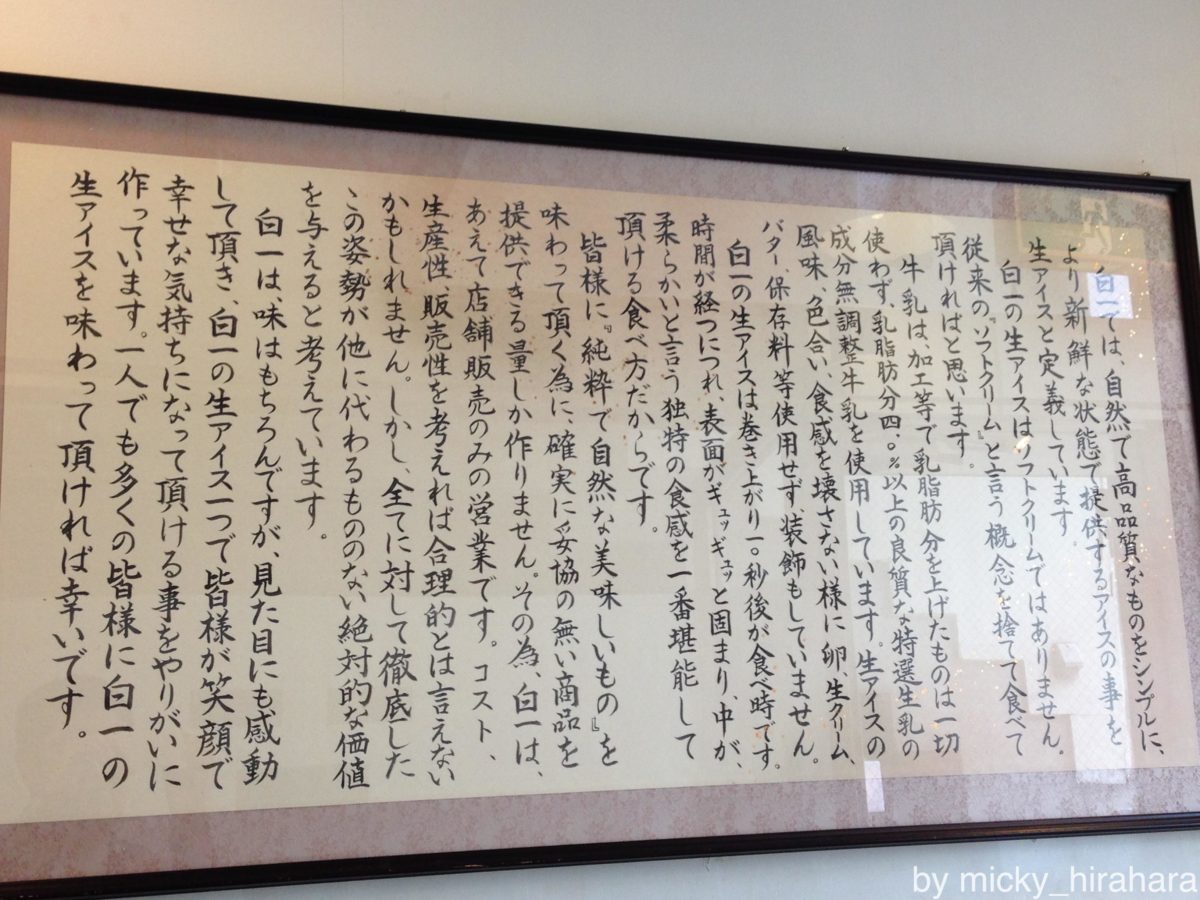 白一では、自然で高品質なものをシンプルに、
より新鮮な状態で提供するアイスの事を
生アイスと定義しています。
白一の生アイスはソフトクリームではありません。
従来の『ソフトクリーム』と言う概念を捨てて食べて
頂ければと思います。
牛乳は、加工等で乳脂肪分を上げたものは一切
使わず、乳脂肪分四.〇%以上の良質な特選生乳の
成分無調整牛乳を使用しています。生アイスの
風味、色合い、食感を壊さない様に卵、生クリーム、
バター、保存料等使用せず、装飾もしていません。
白一の生アイスは巻き上がり一〇秒後が食べ時です。
時間が経つにつれ、表面がギュッギュッと固まり、中が、
柔らかいと言う独特の食感を一番堪能して
頂ける食べ方だからです。
皆様に『純粋で自然な美味しいもの』を
味わって頂く為に、確実に妥協の無い商品を
提供できる量しか作りません。その為、白一は、
あえて店舗販売のみの営業です。コスト、
生産性、販売性を考えれば合理的とは言えない
かもしれません。しかし、全てに対して徹底した
この姿勢が他に代わるもののない絶対的な価値
を与えると考えています。
白一は、味はもちろんですが、見た目にも感動
して頂き、白一の生アイス一つで皆様が笑顔で
幸せな気持ちになって頂ける事をやりがいに
作っています。一人でも多くの皆様に白一の
生アイスを味わって頂ければ幸いです。
by micky_hirahara